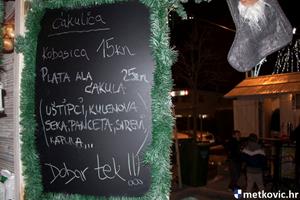 Ćakulica
Kobasica 15kn
Plata ala 25kn
Ćakula
(Uštipci, kulenova
seka, panceta, sirevi,
kapula...)
Dobar tek!!!
metkovic.hr